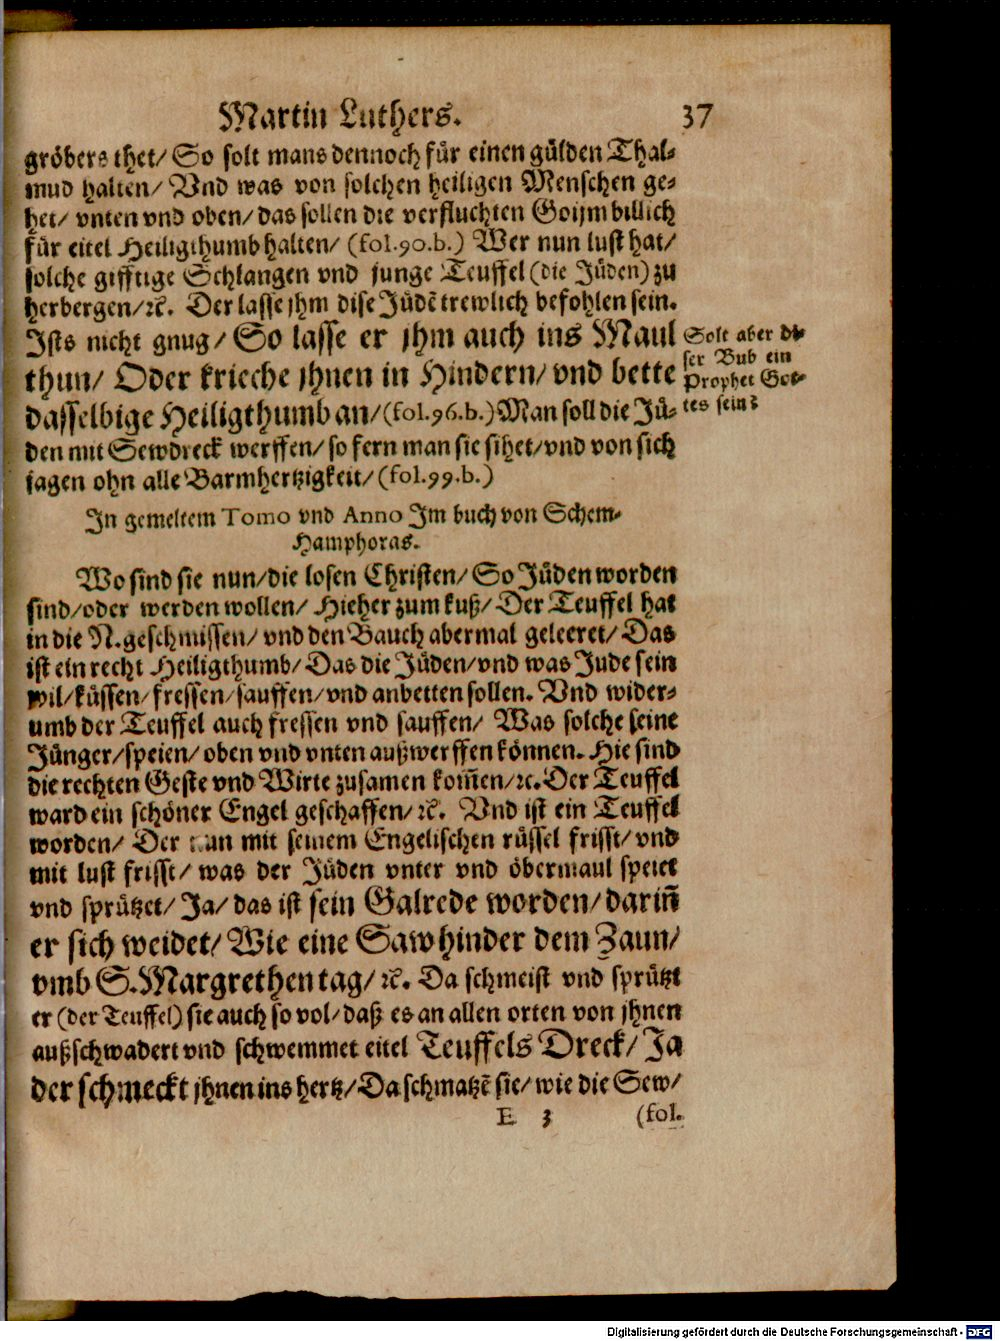 Martin Luthers. 37
gröbers thet/ So solt mans dennoch für einen gülden Thal-
mud halten/ Vnd was von solchen heiligen Menschen ge-
het/ vnten vnd oben/ das sollen die verfluchten Goijm billich
für eitel Heiligthumb halten/ (fol.90.b.) Wer nun lust hat/
solche gifftige Schlangen vnd junge Teuffel (die Jüden) zu
herbergen/ꝛc̃. Der lasse jhm dise Jüdẽ trewlich befohlen sein.
Ists nicht gnug/ So lasse er jhm auch ins Maul
thun/ Oder krieche jhnen in Hindern/ vnd bette
dasselbige Heiligthumb an/ (fol.96.b.) Man soll die Jü-
den mit Sewdreck werffen/ so fern man sie sihet/ vnd von sich
jagen ohn alle Barmhertzigkeit/ (fol.99.b.)
Solt aber di-
ser Bub ein
Prophet Got-
tes sein?
In gemeltem Tomo vnd Anno Im buch von Schem-
Hamphoras.
Wo sind sie nun/ die losen Christen/ So Jüden worden
sind/ oder werden wollen/ Hieher zum kuß/ Der Teuffel hat
in die N. geschmissen/ vnd den Bauch abermal geleeret/ Das
ist ein recht Heiligthumb/ Das die Jüden/ vnd was Jude sein
wil/ küssen/ fressen/ sauffen/ vnd anbetten sollen. Vnd wider-
umb der Teuffel auch fressen vnd sauffen/ Was solche seine
Jünger/ speien/ oben vnd vnten außwerffen können. Hie sind
die rechten Geste vnd Wirte zusamen kom̃en/ꝛc. Der Teuffel
ward ein schöner Engel geschaffen/ꝛc̃. Vnd ist ein Teuffel
worden/ Der nun mit seinem Engelischen rüssel frisst/ vnd
mit lust frisst/ was der Jüden vnter vnd öbermaul speiet
vnd sprützet/ Ja/ das ist sein Galrede worden/ darin̄
er sich weidet/ Wie eine Saw hinder dem Zaun/
vmb S. Margrethen tag/ꝛc̃. Da schmeist vnd sprützt
er (der Teuffel) sie auch so vol/ daß es an allen orten von jhnen
außschwadert vnd schwemmet eitel Teuffels Dreck/ Ja
der schmeckt jhnen ins hertz/ Da schmatzẽ sie/ wie die Sew/
E 3 (fol.
Digitalisierung gefördert durch die Deutsche Forschungsgemeinschaft - DFG